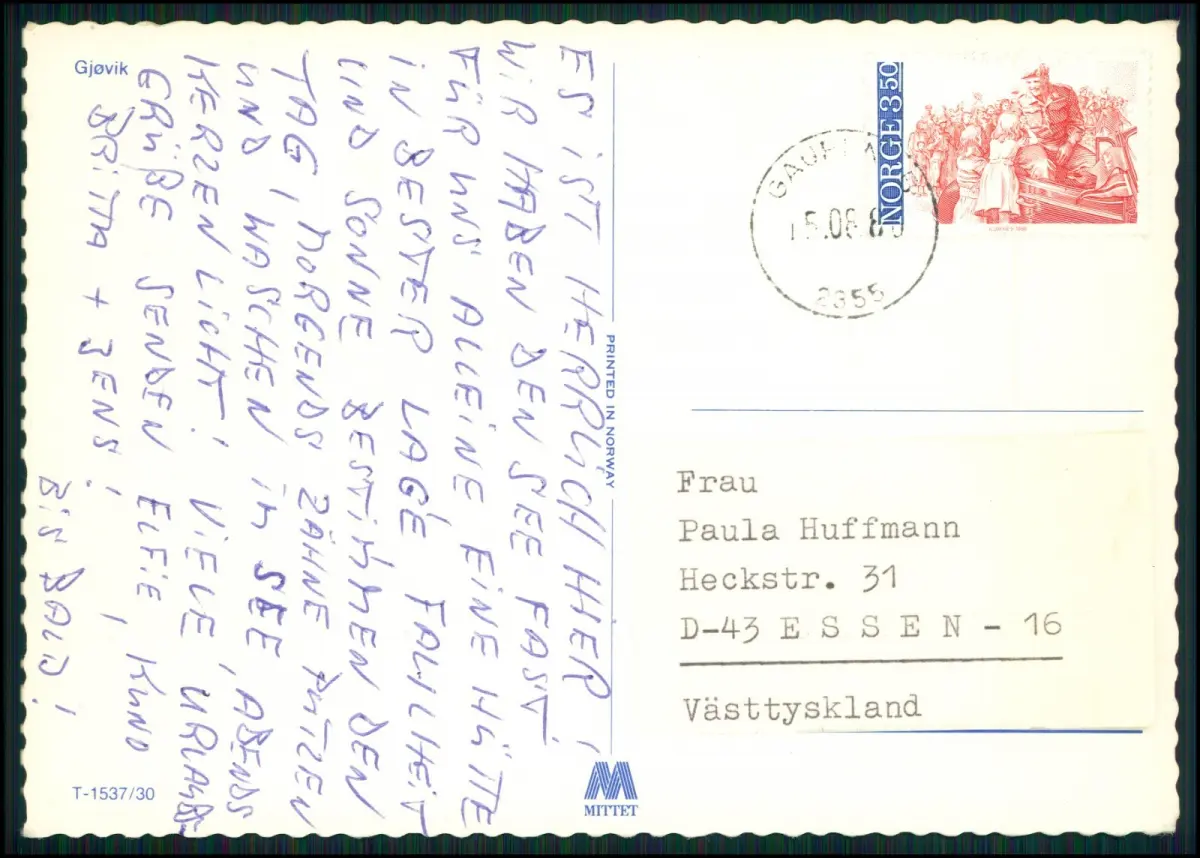 Gjøvik
ES IST HERRLICH HIER!
WIR HABEN DEN SEE FAST
FÜR UNS ALLEINE EINE HÜTTE
IN BESTER LAGE FAULHEIT
UND SONNE BESTIMMEN DEN
TAG, MORGENDS ZÄHNE PUTZEN
UND WASCHEN IM SEE, ABENDS
KERZENLICHT! VIELE URLAUBS-
GRÜßE SENDEN ELFIE, KUNO
BRITTA + JENS!
BIS BALD!
T-1537/30
PRINTED IN NORWAY
MITTET
NORGE 3.50
2355
Frau
Paula Huffmann
Heckstr. 31
D-43 E S S E N - 16
Västtyskland